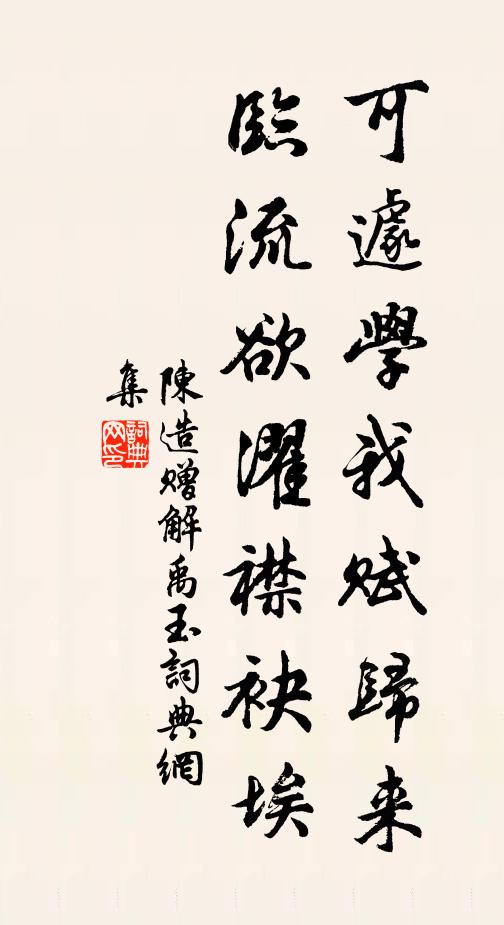 可遽學我賦歸来
臨流欲濯襟袂埃
陳造贈解禹玉詞典網
集
詞典網印